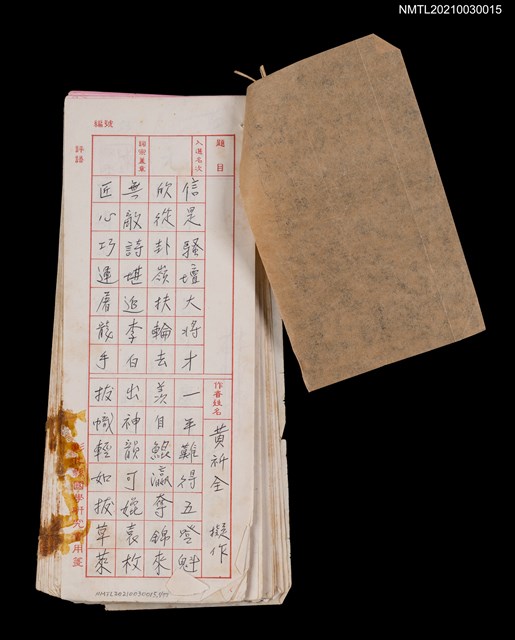 NMTL20210030015
編號
題目
入選名次
詞宗蓋章
評語
信是騷壇大將才
一年難得五登魁
欣從卦嶺扶輪去
羨自鯤瀛奪錦來
無敵詩堪追李白
出神韻可媲袁枚
匠心巧運屠龍手
拔幟輕如拔草萊
作者姓名
黃祈全 擬作
學研究 用箋
NMTL20210030015